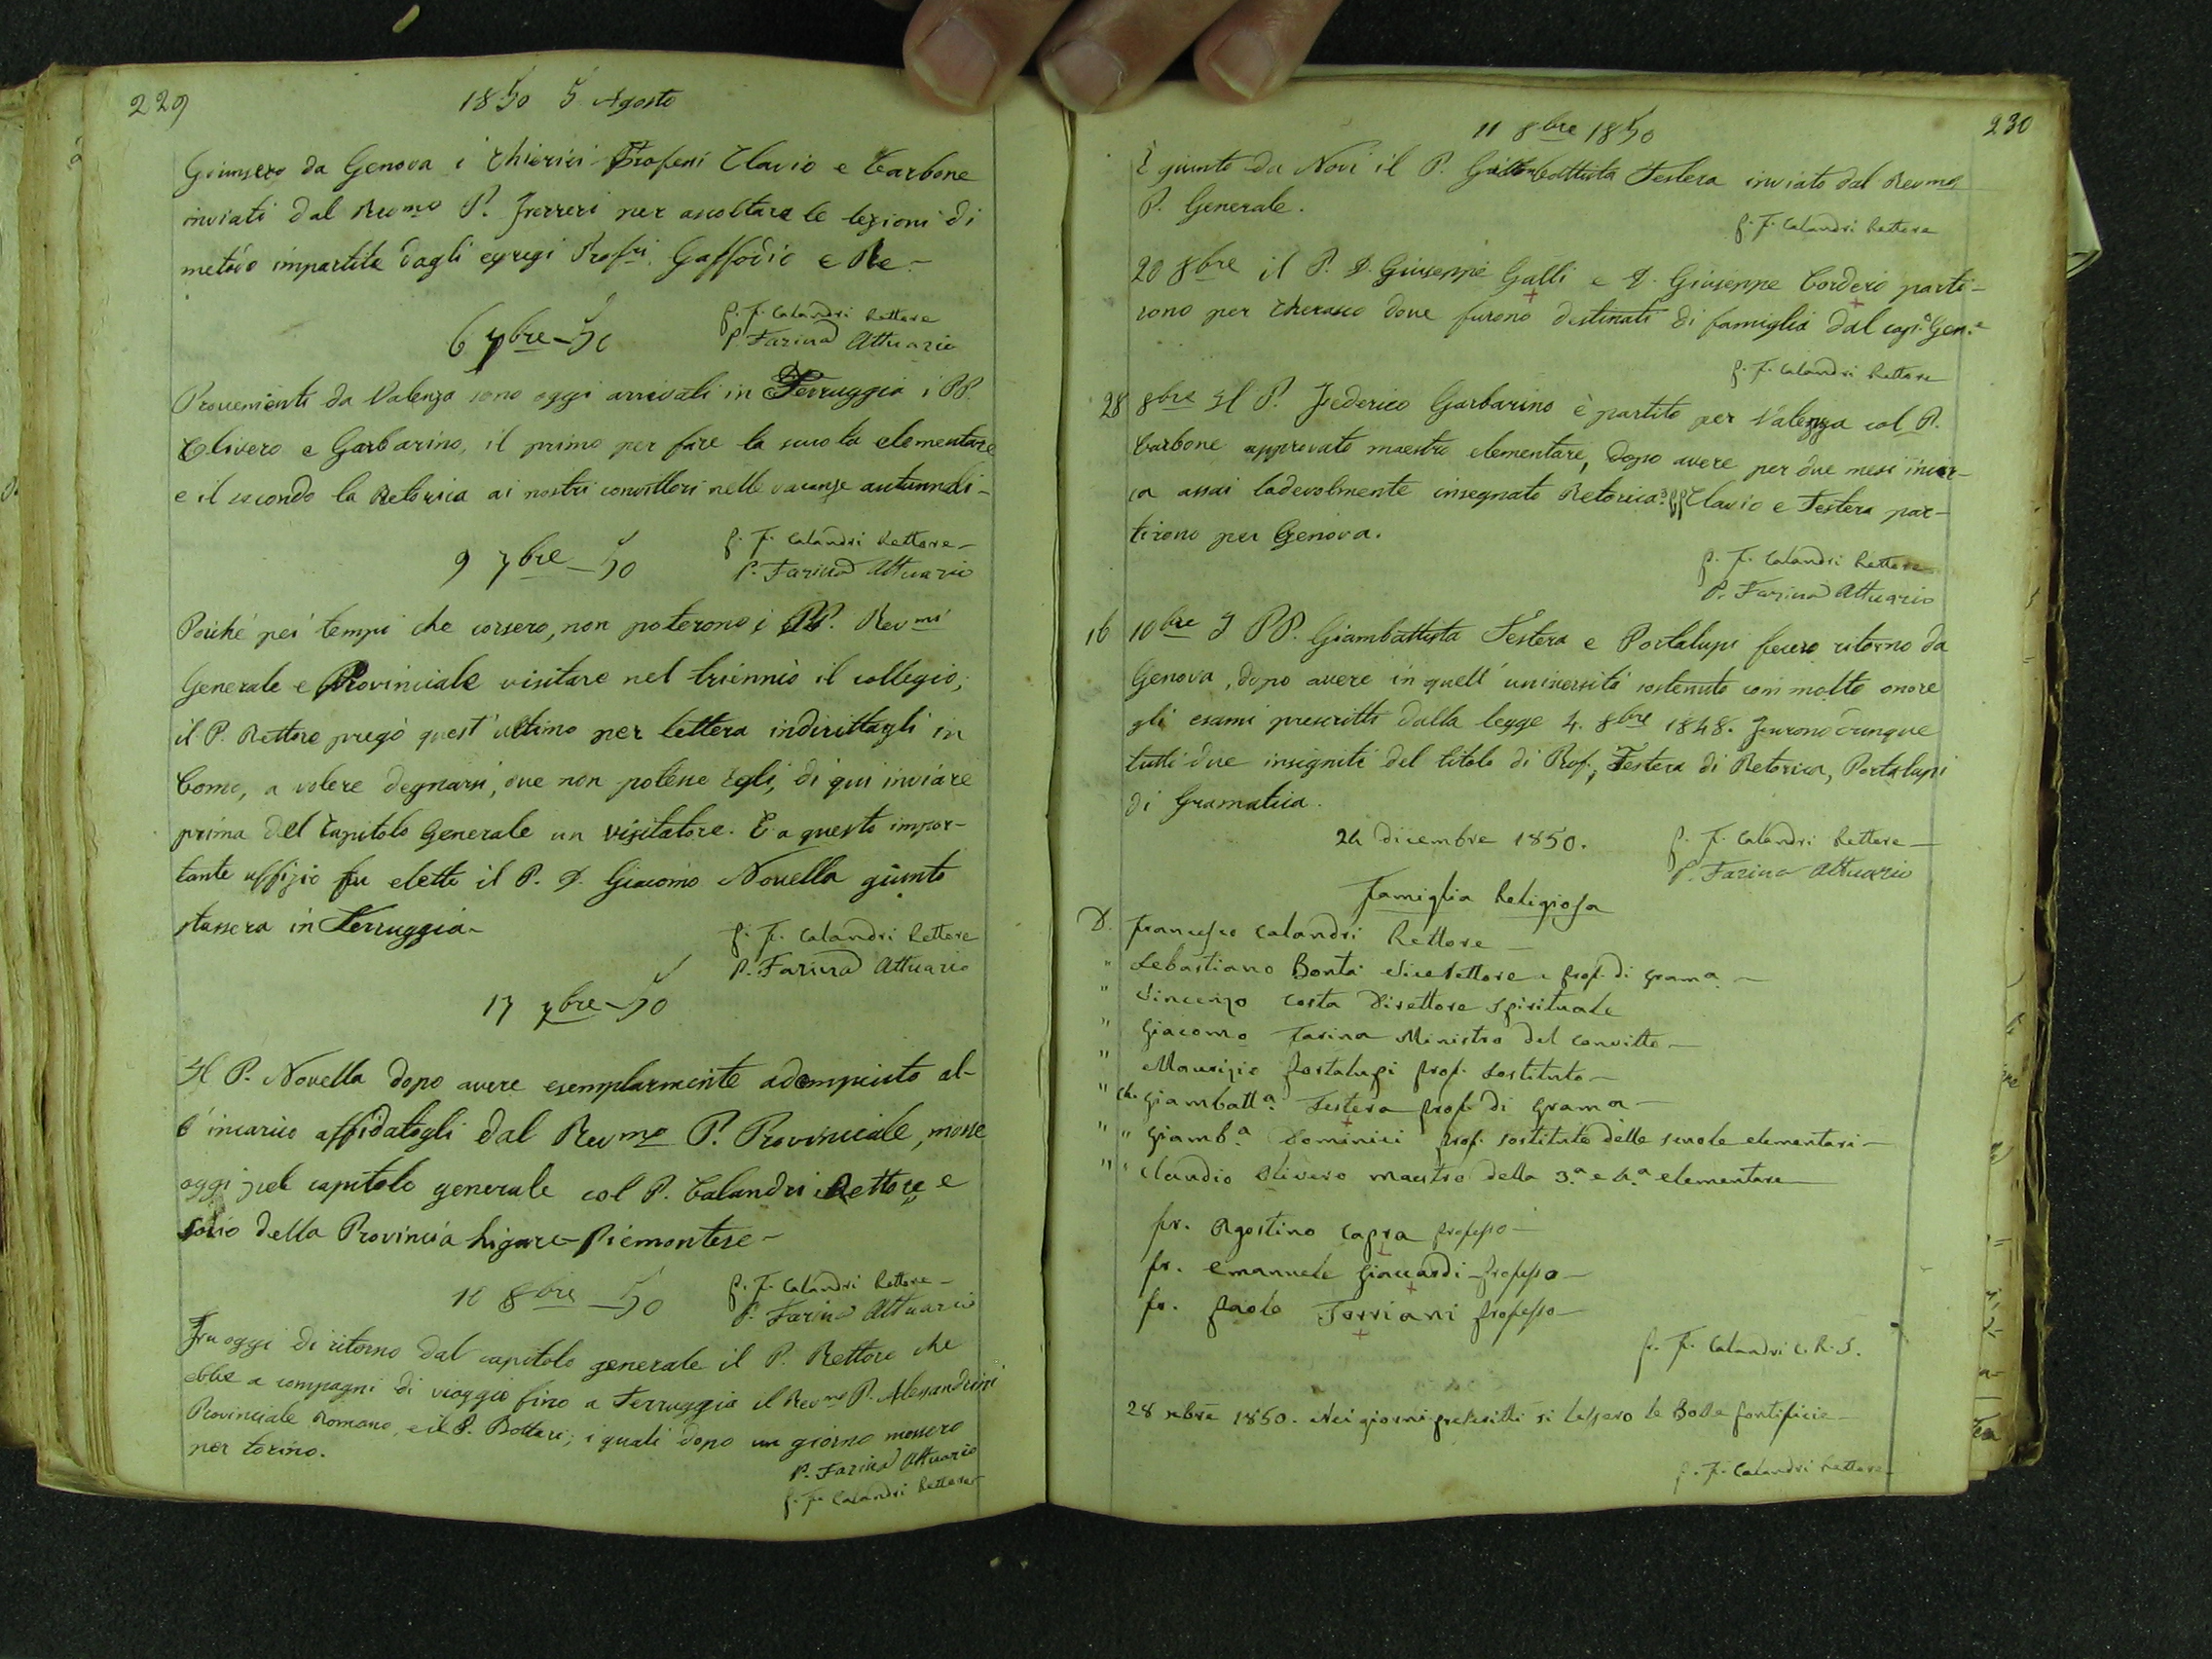 229
1850 5 Agosto
Giunsero da Genova i Chierici Professi Clavio e Carbone
inviati dal Revmo P. Ferreri per ascoltare le lezioni di
metodo impartite dagli egregi Profri. Gaffodio e Re-
P. F. Calandri Rettore
6 7bre - 50 P. Farina Attuario
Provenienti da Valenza sono oggi arrivati in Ferruggia i PP.
Olivero e Garbarino, il primo per fare la scuola elementare
e il secondo la Retorica ai nostri convittori nelle vacanze autunnali-
P. F. Calandri Rettore-
9 7bre - 50 P. Farina Attuario
Poiché pei tempi che corsero, non poterono i PP. Revmi
Generale e Provinciale visitare nel triennio il collegio,
il P. Rettore pregò quest'ultimo per lettera indirittagli in
Como, a volere degnarsi, ove non potesse Egli, di qui inviare
prima del Capitolo Generale un visitatore. E a questo impor-
tante uffizio fu eletto il P. D. Giacomo Novella giunto
stassera in Ferruggia-
P. F. Calandri Rettore
P. Farina Attuario
17 7bre - 50
Il P. Novella dopo avere esemplarmente adempiuto al-
l'incarico affidatogli dal Revmo P. Provinciale, mosse
oggi pel capitolo generale col P. Calandri Rettore e
socio della Provincia Ligure-Piemontese-
P. F. Calandri Rettore-
10 8bre - 50 P. Farina Attuario
Fu oggi di ritorno dal capitolo generale il P. Rettore che
ebbe a compagni di viaggio fino a Ferruggia il Revmo P. Alessandrini
Provinciale Romano, e il P. Bottari; i quali dopo un giorno mossero
per torino.
P. Farina Attuario
P. F. Calandri Rettore
230
11 8bre 1850
È giunto da Novi il P. Giambattista Testera inviato dal Revmo
P. Generale.
P. F. Calandri Rettore
20 8bre il P. D. Giuseppe Galli e D. Giuseppe Cordero parti-
rono per Cherasco dove furono destinati di famiglia dal cap.o Gen.e
P. F. Calandri Rettore
28 8bre Il P. Federico Garbarino è partito per Valenza col P.
Carbone approvato maestro elementare, dopo avere per due mesi incir-
ca assai lodevolmente insegnato Retorica. I PP. Clavio e Testera par-
tirono per Genova.
P. F. Calandri Rettore
P. Farina Attuario
16 10bre I PP. Giambattista Testera e Portalupi fecero ritorno da
Genova, dopo avere in quell'università sostenuto con molto onore
gli esami prescritti dalla legge 4. 8bre 1848. Furono dunque
tutti due insigniti del titolo di Prof.; Testera di Retorica, Portalupi
di Gramatica.
24 dicembre 1850. P. F. Calandri Rettore-
P. Farina Attuario
Famiglia Religiosa
D. Francesco Calandri Rettore -
" Sebastiano Bontà Vicerettore e prof. di Grama. -
" Vincenzo Costa Direttore Spirituale
" Giacomo Farina Ministro del Convitto -
" Maurizio Portalupi prof. sostituto -
" Ch. Giambatt.a Testera prof. di Grama -
" " Giamb.a Dominici prof. sostituto delle scuole elementari -
" " Claudio Olivero maestro della 3.a e 4.a elementare
fr. Agostino Capra professo -
fr. Emanuele Giaccardi professo -
fr. Paolo Torriani professo -
P. F. Calandri C. R. S.
28 xbre 1850. Nei giorni prescritti si lessero le Bolle Pontificie -
P. F. Calandri Rettore-